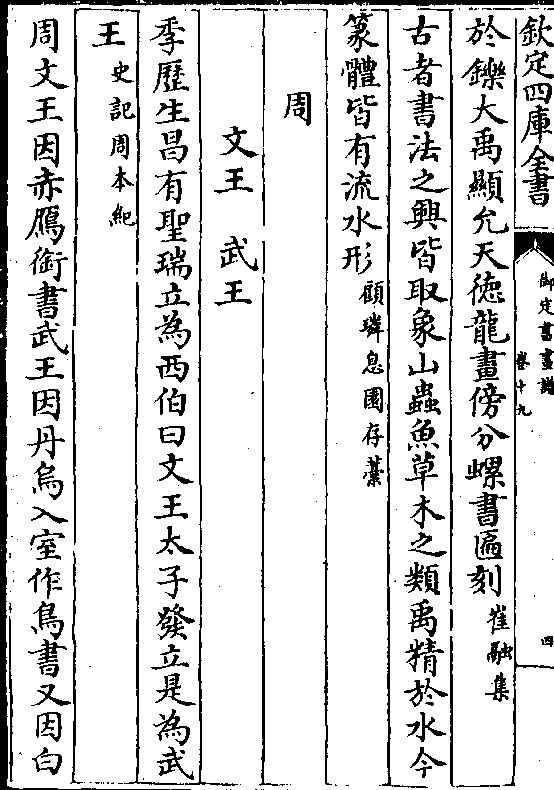 欽定四庫全書
御定書畫譜
卷十九
四
於鑠大禹顯允天德龍畫傍分螺書匾刻崔融集
古者書法之興皆取象山蟲魚草木之類禹精於水今
篆體皆有流水形顧璘息園存藁
周
文王　武王
季歷生昌有聖瑞立為西伯曰文王太子發立是為武
王史記周本紀
周文王因赤鴈銜書武王因丹鳥入室作鳥書又因白